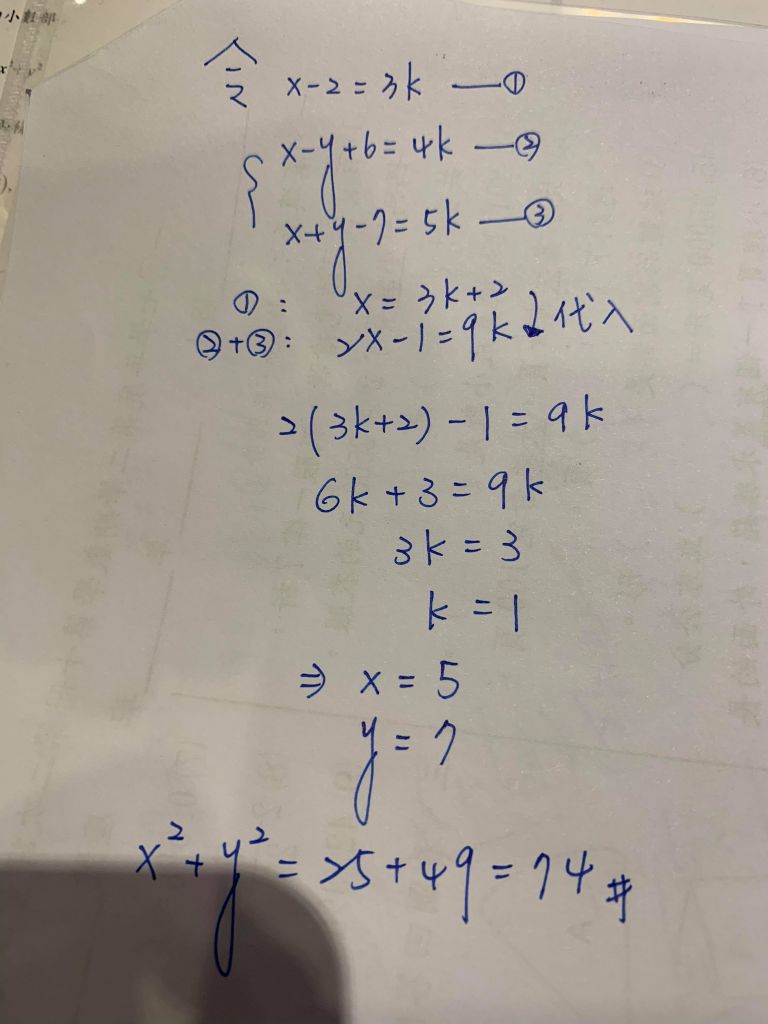 小數部
令 x-2=3k —①
x-y+6=4k —②
x+y-7=5k —③
①: x=3k+2
②+③: 2x-1=9k 代入
2(3k+2)-1=9k
6k+3=9k
3k=3
k=1
⇒ x=5
y=7
x²+y²=25+49=74 #